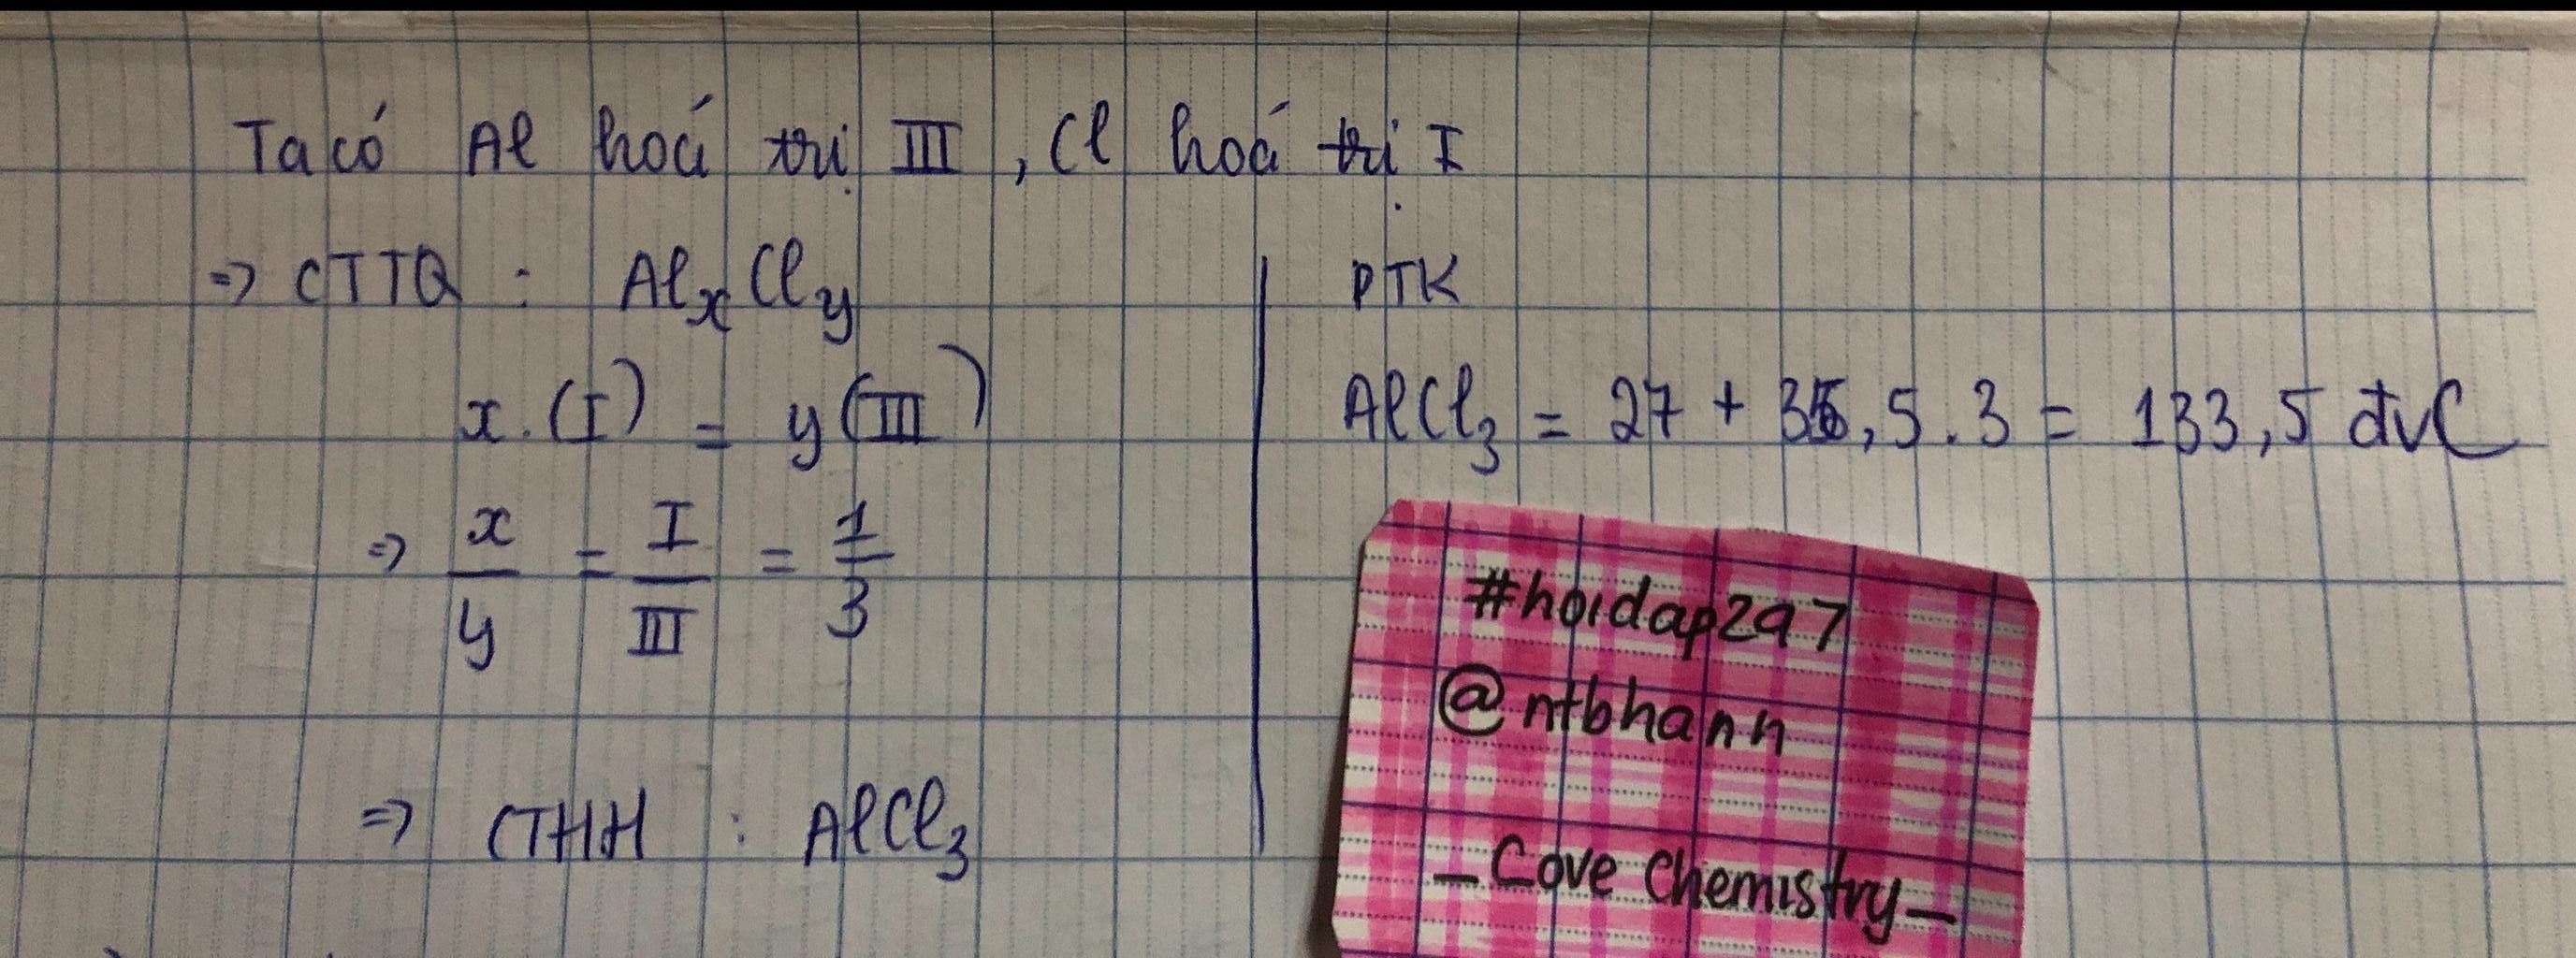 Ta có Al hoá trị III , Cl hoá trị I
=> CTTQ : AlxCly
x.(I) = y(III)
=> x/y = I/III = 1/3
=> CTHH : AlCl3
PTK
AlCl3 = 27 + 35,5.3 = 133,5 đvC
#hoidap297
@ntbhann
_Cove Chemistry_